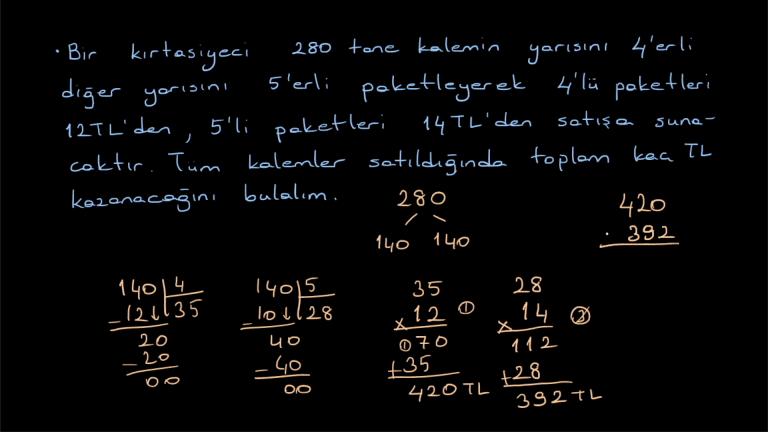 · Bir kırtasiyeci 280 tane kalemin yarısını 4'erli
diğer yarısını 5'erli paketleyerek 4'lü paketleri
12TL'den, 5'li paketleri 14TL'den satışa suna-
caktır. Tüm kalemler satıldığında toplam kaç TL
kazanacağını bulalım.
280
140 140
420
· 392
140 4
-12 35
20
-20
00
140 5
-10 28
40
-40
00
35
x 12 ①
①70
+35
420 TL
28
x 14 ②
112
+28
392 TL